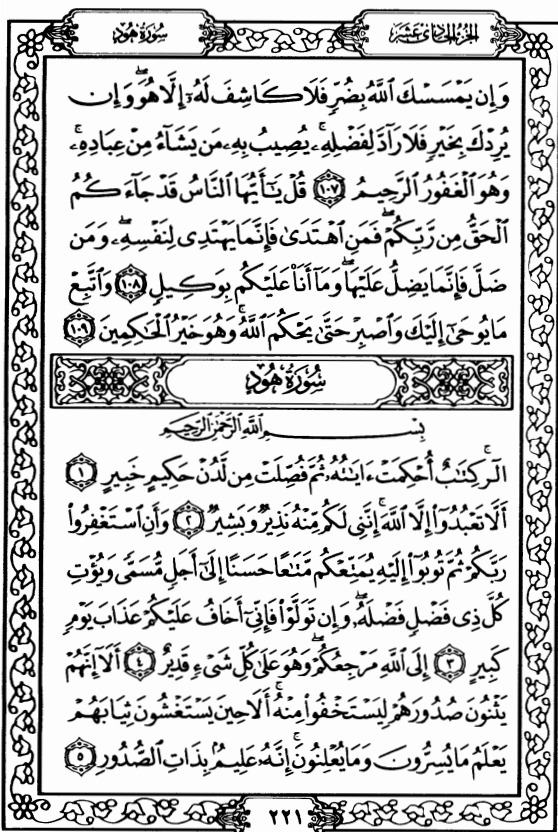 الجزء الحادي عشر
سورة هود
وَإِن يَمْسَسْكَ ٱللَّهُ بِضُرٍّ فَلَا كَاشِفَ لَهُۥٓ إِلَّا هُوَۖ وَإِن
يُرِدْكَ بِخَيْرٍ فَلَا رَآدَّ لِفَضْلِهِۦۚ يُصِيبُ بِهِۦ مَن يَشَآءُ مِنْ عِبَادِهِۦۚ
وَهُوَ ٱلْغَفُورُ ٱلرَّحِيمُ ١٠٧ قُلْ يَـٰٓأَيُّهَا ٱلنَّاسُ قَدْ جَآءَكُمُ
ٱلْحَقُّ مِن رَّبِّكُمْۖ فَمَنِ ٱهْتَدَىٰ فَإِنَّمَا يَهْتَدِى لِنَفْسِهِۦۖ وَمَن
ضَلَّ فَإِنَّمَا يَضِلُّ عَلَيْهَاۖ وَمَآ أَنَا۠ عَلَيْكُم بِوَكِيلٍ ١٠٨ وَٱتَّبِعْ
مَا يُوحَىٰٓ إِلَيْكَ وَٱصْبِرْ حَتَّىٰ يَحْكُمَ ٱللَّهُۚ وَهُوَ خَيْرُ ٱلْحَـٰكِمِينَ ١٠٩
سُورَةُ هُودٍ
بِسْمِ ٱللَّهِ ٱلرَّحْمَـٰنِ ٱلرَّحِيمِ
الٓرۚ كِتَـٰبٌ أُحْكِمَتْ ءَايَـٰتُهُۥ ثُمَّ فُصِّلَتْ مِن لَّدُنْ حَكِيمٍ خَبِيرٍ ١
أَلَّا تَعْبُدُوٓا۟ إِلَّا ٱللَّهَۚ إِنَّنِى لَكُم مِّنْهُ نَذِيرٌ وَبَشِيرٌ ٢ وَأَنِ ٱسْتَغْفِرُوا۟
رَبَّكُمْ ثُمَّ تُوبُوٓا۟ إِلَيْهِ يُمَتِّعْكُم مَّتَـٰعًا حَسَنًا إِلَىٰٓ أَجَلٍ مُّسَمًّى وَيُؤْتِ
كُلَّ ذِى فَضْلٍ فَضْلَهُۥۖ وَإِن تَوَلَّوْا۟ فَإِنِّىٓ أَخَافُ عَلَيْكُمْ عَذَابَ يَوْمٍ
كَبِيرٍ ٣ إِلَى ٱللَّهِ مَرْجِعُكُمْۖ وَهُوَ عَلَىٰ كُلِّ شَىْءٍ قَدِيرٌ ٤ أَلَآ إِنَّهُمْ
يَثْنُونَ صُدُورَهُمْ لِيَسْتَخْفُوا۟ مِنْهُۚ أَلَا حِينَ يَسْتَغْشُونَ ثِيَابَهُمْ
يَعْلَمُ مَا يُسِرُّونَ وَمَا يُعْلِنُونَۚ إِنَّهُۥ عَلِيمٌۢ بِذَاتِ ٱلصُّدُورِ ٥
٢٢١